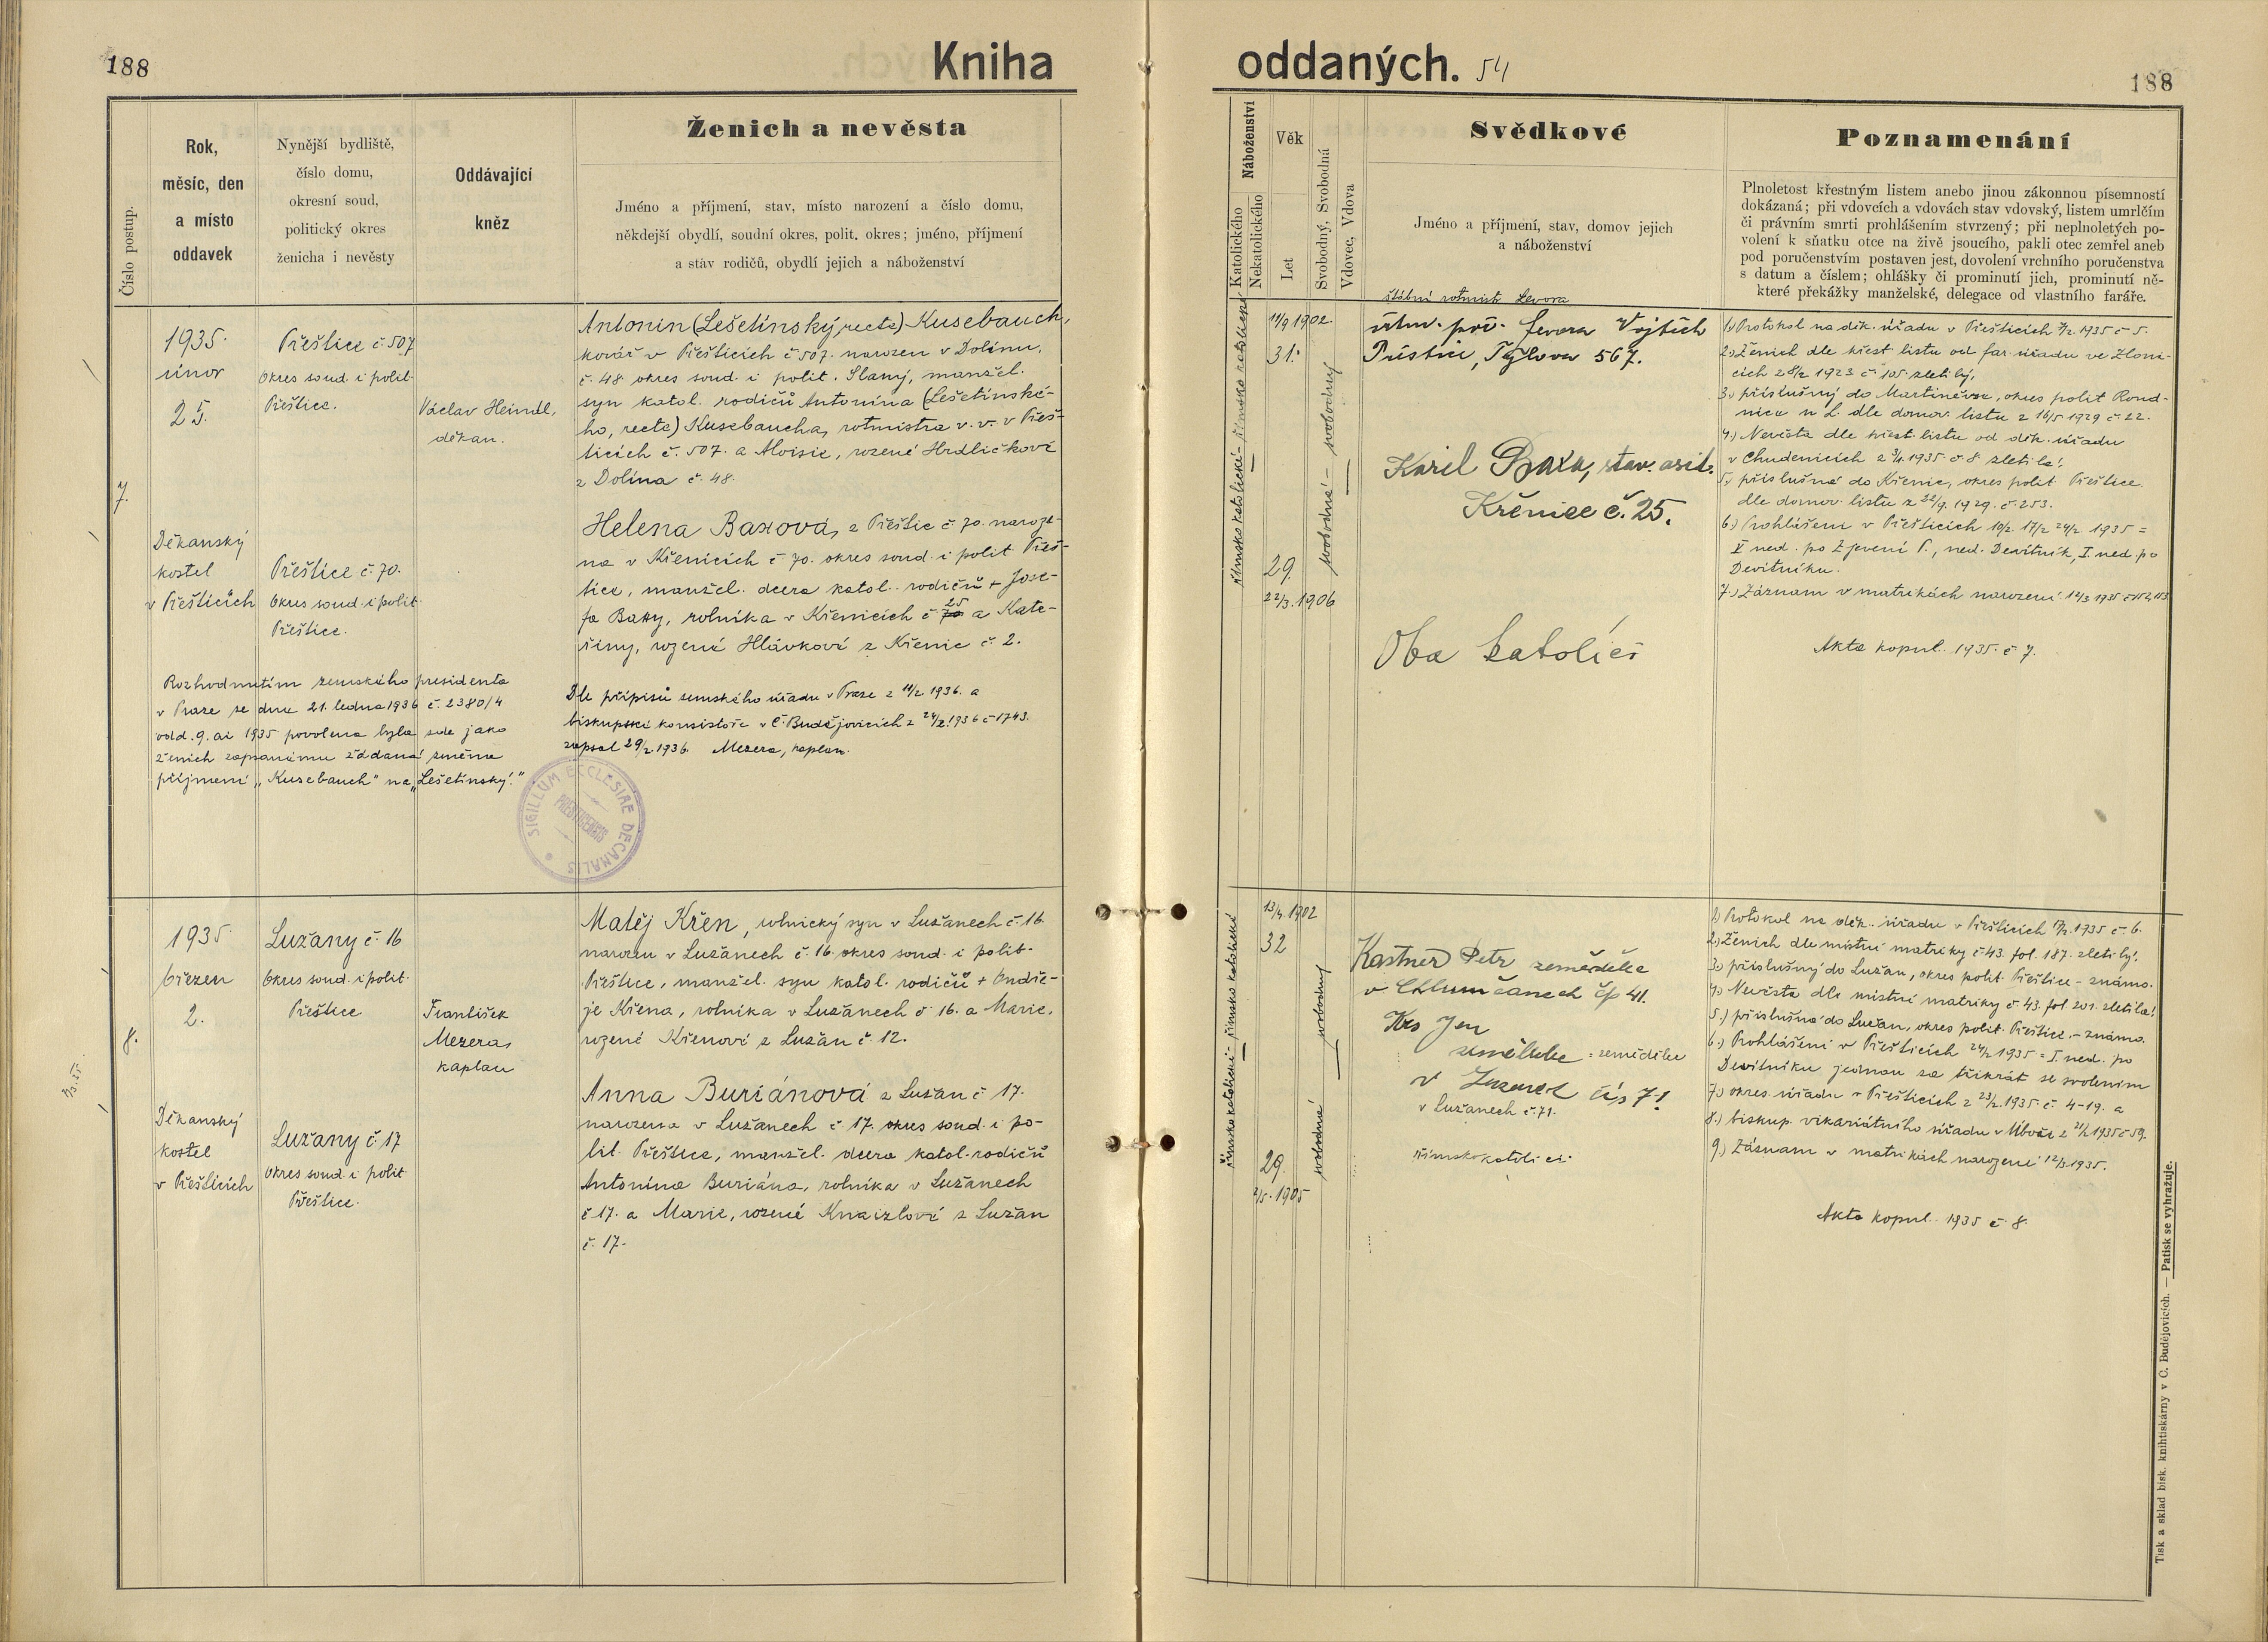 188
Kniha
Číslo postup.
Rok,
měsíc, den
a místo
oddavek
Nynější bydliště,
číslo domu,
okresní soud,
politický okres
ženicha i nevěsty
Oddávající
kněz
Ženich a nevěsta
Jméno a příjmení, stav, místo narození a číslo domu,
někdejší obydlí, soudní okres, polit. okres; jméno, příjmení
a stav rodičů, obydlí jejich a náboženství
7.
1935.
únor
25.
Děkanský
kostel
v Přešticích
Přeštice č. 507
Okres soud. i polit.
Přeštice.
Přeštice č. 70.
Okres soud. i polit.
Přeštice.
Václav Heindl,
děkan.
Antonín (Lešetínský, recte) Kusebauch,
kovář v Přešticích č. 507. narozen v Dolínu,
č. 48 okres soud. i polit. Slaný, manžel.
syn katol. rodičů Antonína (Lešetínské-
ho, recte) Kusebaucha, rotmistra v. v. v Přeš-
ticích č. 507. a Aloisie, rozené Hrdličkové
z Dolína č. 48.
Helena Baxová, z Přeštic č. 70. naroze-
na v Křenicích č. 70. okres soud. i polit. Přeš-
tice, manžel. dcera katol. rodičů + Jose-
fa Baxy, rolníka v Křenicích č. 70 25 a Kate-
řiny, rozené Hlávkové z Křenic č. 2.
Rozhodnutím zemského presidenta
v Praze ze dne 21. ledna 1936 č. 2380/4
odd. 9. ai 1935 povolena byla zde jako
ženich zapsanému žádaná změna
příjmení „Kusebauch" na „Lešetínský."
Dle přípisů zemského úřadu v Praze z 11/2 1936. a
biskupské konsistoře v Č. Budějovicích z 24/2. 1936 č. 1743.
zapsal 29/2. 1936. Mezera, kaplan.
SIGILLUM ECCLESIAE DECANALIS
8.
1935.
březen
2.
Děkanský
kostel
v Přešticích
Lužany č. 16
Okres soud. i polit.
Přeštice
Lužany č. 17
Okres soud. i polit
Přeštice.
František
Mezera,
kaplan
Matěj Křen, rolnický syn v Lužanech č. 16.
narozen v Lužanech č. 16. okres soud. i polit.
Přeštice, manžel. syn katol. rodičů + Ondře-
je Křena, rolníka v Lužanech č. 16. a Marie,
rozené Křenové z Lužan č. 12.
Anna Buriánová z Lužan č. 17.
narozena v Lužanech č. 17. okres soud. i po-
lit. Přeštice, manžel. dcera katol. rodičů
Antonína Buriána, rolníka v Lužanech
č. 17. a Marie, rozené Knaizlové z Lužan
č. 17.
oddaných. 54
188
Náboženství
Katolického
Nekatolického
Věk
Let
Svobodný, Svobodná
Vdovec, Vdova
Svědkové
Jméno a příjmení, stav, domov jejich
a náboženství
Poznamenání
Plnoletost křestným listem anebo jinou zákonnou písemností
dokázaná; při vdovcích a vdovách stav vdovský, listem umrlčím
či právním smrti prohlášením stvrzený; při neplnoletých po-
volení k sňatku otce na živě jsoucího, pakli otec zemřel aneb
pod poručenstvím postaven jest, dovolení vrchního poručenstva
s datum a číslem; ohlášky či prominutí jich, prominutí ně-
které překážky manželské, delegace od vlastního faráře.
římsko katolické – římsko katolické
11/9 1902.
31.
29.
22/3. 1906
svobodná – svobodný
štábní rotmistr Levora
Levora Vojtěch
Přeštice, Tylova 567.
Karel Baxa, stav. asist.
Křenice č. 25.
Oba katolíci
1.) Protokol na děk. úřadu v Přešticích 7/2. 1935 č. 5.
2.) Ženich dle křest. listu od far. úřadu ve Zloni-
cích 28/2 1923 č. 105. zletilý,
3.) příslušný do Martiněvse, okres polit. Roud-
nice n. L. dle domov. listu z 16/5 1929 č. 22.
4.) Nevěsta dle křest. listu od děk. úřadu
v Chudenicích z 3/1. 1935. č. 8. zletilá,
5.) příslušná do Křenic, okres polit. Přeštice
dle domov. listu z 22/9. 1929. č. 253.
6.) Prohlášení v Přešticích 10/2. 17/2 24/2 1935 =
V ned. po Zjevení P., ned. Devítník, I. ned. po
Devítníku.
7.) Záznam v matrikách narození 12/3 1935
Akta kopul. 1935. č. 7.
římsko katolická – římsko katolické
13/4. 1902
32
29.
2/5. 1905
svobodná – svobodný
Kastner Petr zemědělec
v Chlumčanech čp 41.
Jan
zemědělec = zemědělec
v Luzanech čís 71
v Lužanech č. 71.
římskokatolíci.
1.) Protokol na děk. úřadu v Přešticích 17/2. 1935 č. 6.
2.) Ženich dle místní matriky č. 43. fol. 187. zletilý,
3.) příslušný do Lužan, okres polit. Přeštice – známo.
4.) Nevěsta dle místní matriky č. 43. fol. 201. zletilá,
5.) příslušná do Lužan, okres polit. Přeštice. – známo.
6.) Prohlášení v Přešticích 24/2 1935 = I. ned. po
Devítníku jednou za třikrát se svolením
7.) okres. úřadu v Přešticích z 23/2. 1935. č. 4-19. a
8.) biskup. vikariátního úřadu v z 21/2 1935 č. 59.
9.) Záznam v matrikách narození 12/3. 1935.
Akta kopul. 1935 č. 8.
Tisk a sklad bisk. knihtiskárny v Č. Budějovicích. — Patisk se vyhražuje.